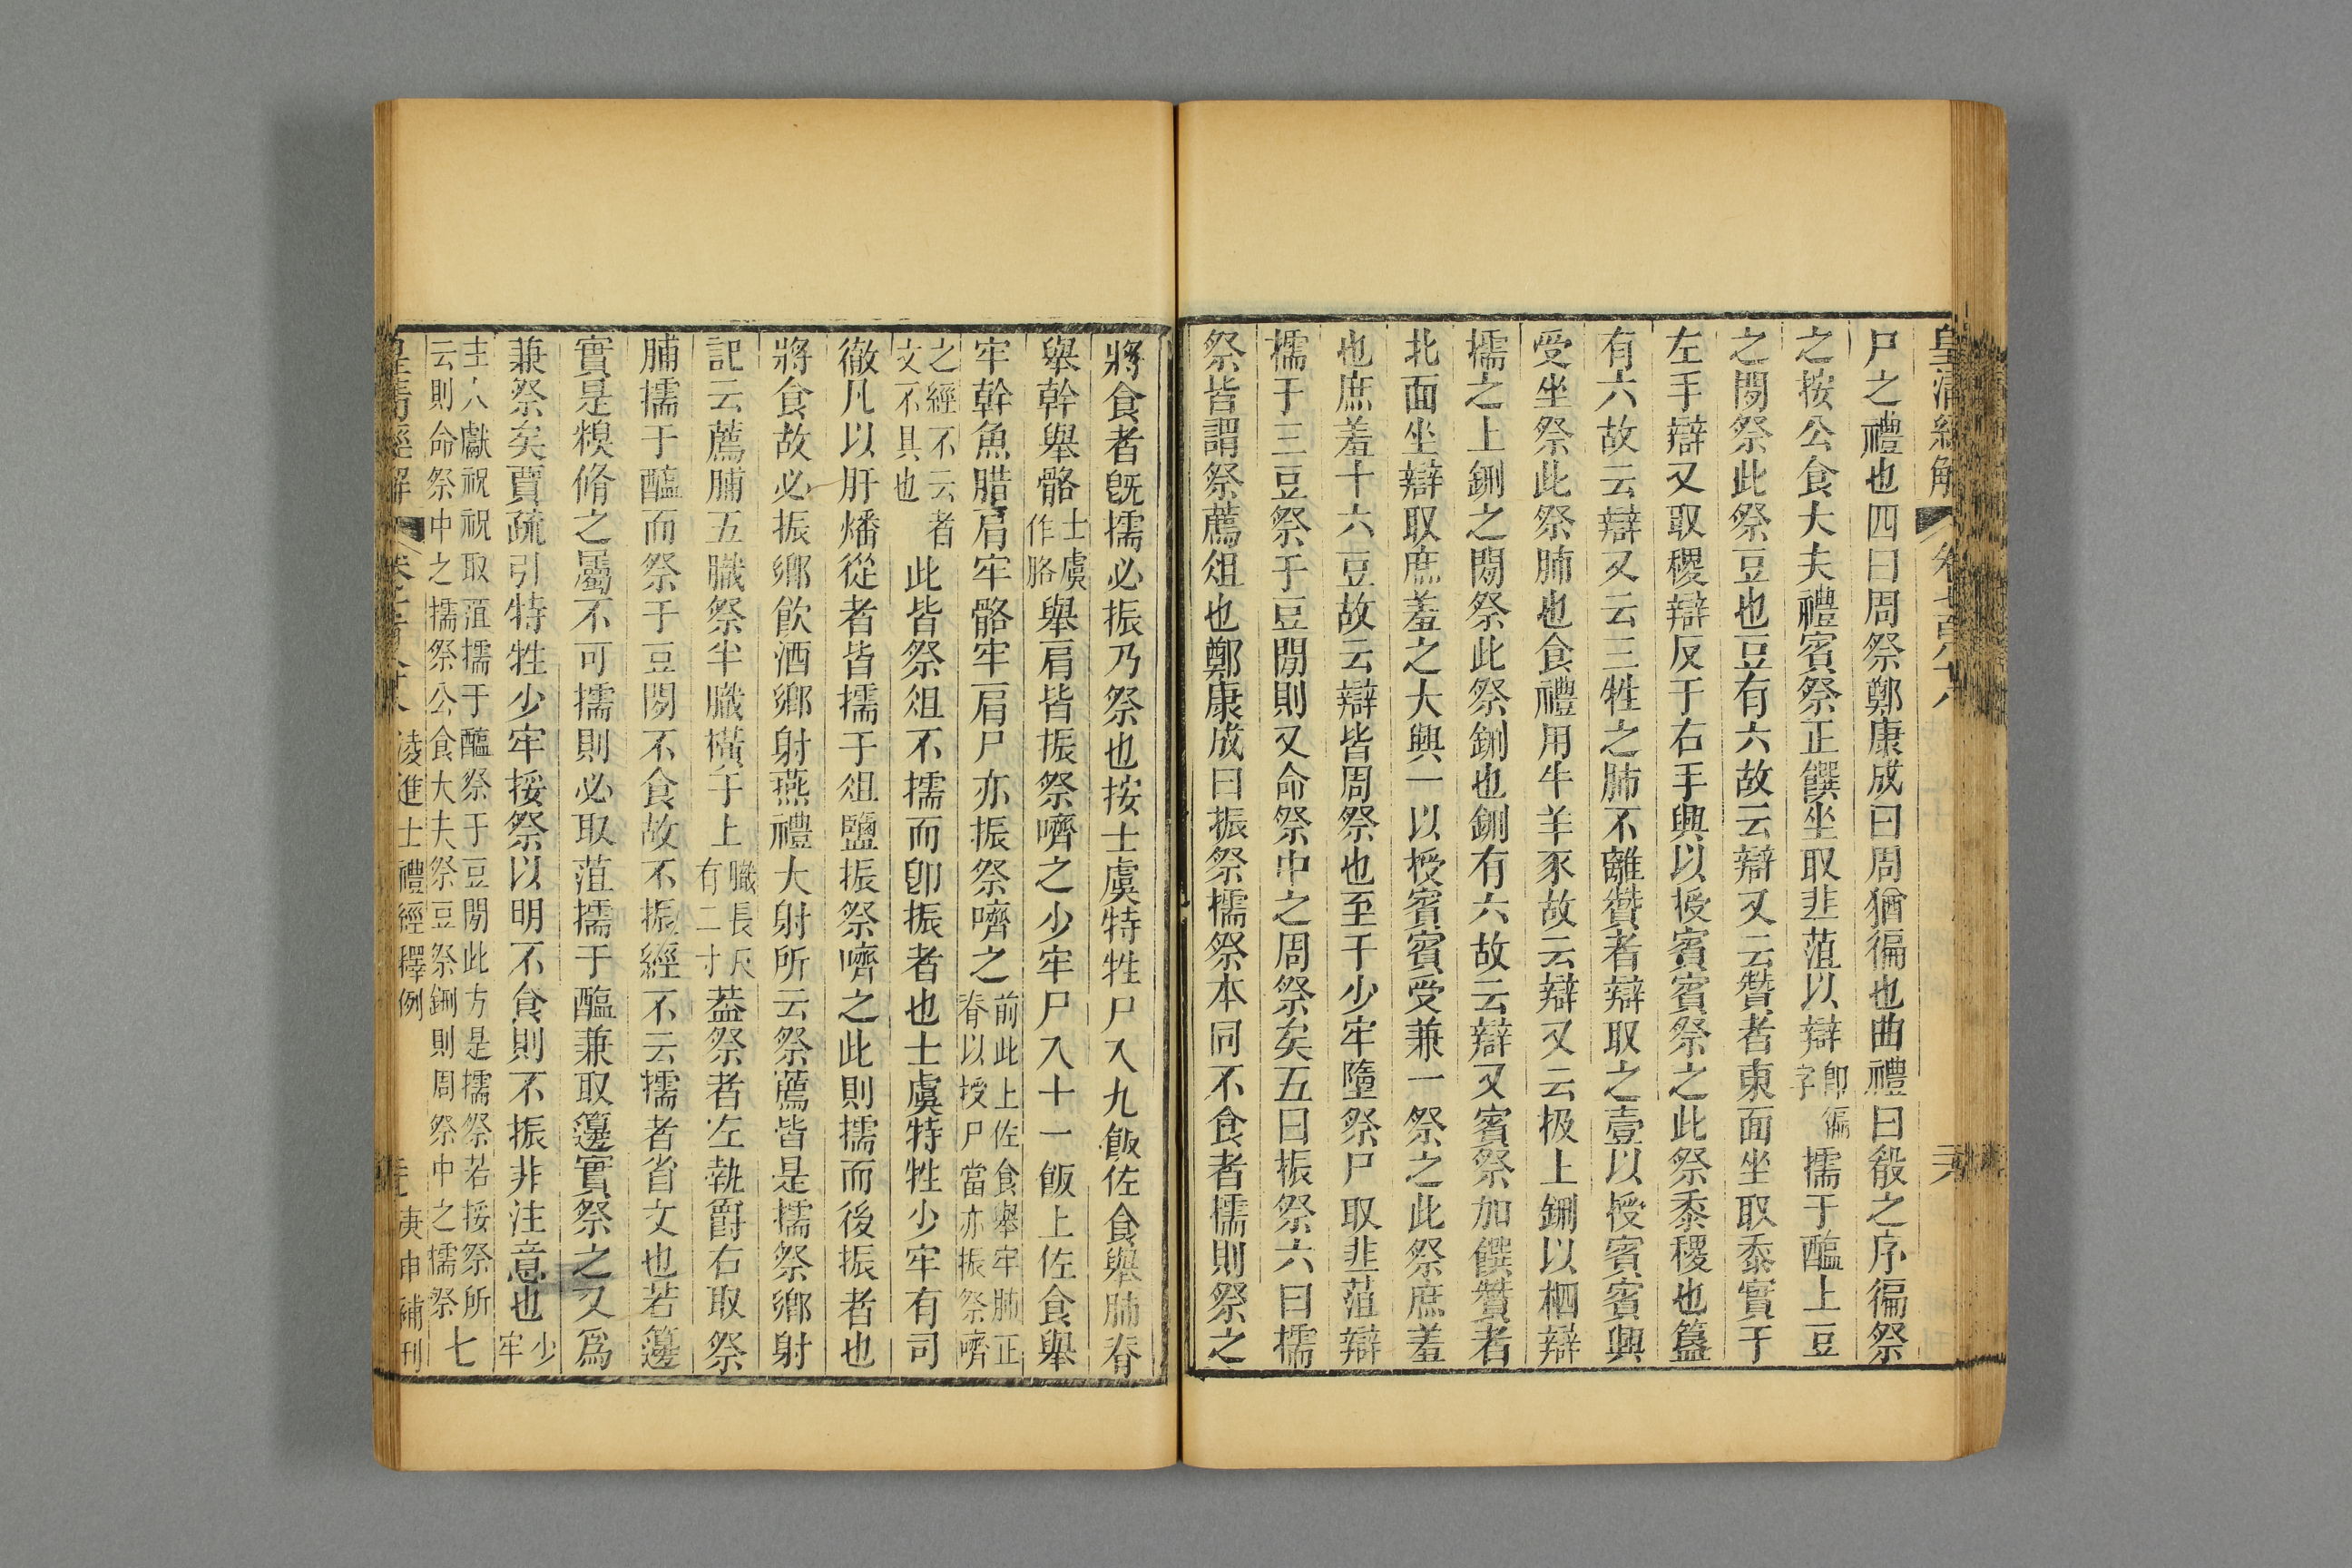 皇清經解
卷七百八十八
尸之禮也四曰周祭鄭康成曰周猶徧也曲禮曰殽之序徧祭
之按公食大夫禮賓祭正饌坐取韭菹以辯卽徧字擩于醢上豆
之閒祭此祭豆也豆有六故云辯又云贊者東面坐取黍實于
左手辯又取稷辯反于右手興以授賓賓祭之此祭黍稷也簋
有六故云辯又云三牲之肺不離贊者辯取之壹以授賓賓興
受坐祭此祭肺也食禮用牛羊豕故云辯又云扱上鉶以柶辯
擩之上鉶之閒祭此祭鉶也鉶有六故云辯又賓祭加饌贊者
北面坐辯取庶羞之大興一以授賓賓受兼一祭之此祭庶羞
也庶羞十六豆故云辯皆周祭也至于少牢墮祭尸取韭菹辯
擩于三豆祭于豆閒則又命祭中之周祭矣五曰振祭六曰擩
祭皆謂祭薦俎也鄭康成曰振祭擩祭本同不食者擩則祭之
將食者旣擩必振乃祭也按士虞特牲尸入九飯佐食舉肺脊
舉幹舉骼士虞作胳舉肩皆振祭嚌之少牢尸入十一飯上佐食舉
牢幹魚腊肩牢骼牢肩尸亦振祭嚌之前此上佐食舉牢肺正脊以授尸當亦振祭嚌
之經不云者文不具也此皆祭俎不擩而卽振者也士虞特牲少牢有司
徹凡以肝燔從者皆擩于俎鹽振祭嚌之此則擩而後振者也
將食故必振鄉飲酒鄉射燕禮大射所云祭薦皆是擩祭鄉射
記云薦脯五膱祭半膱橫于上膱長尺有二寸葢祭者左執爵右取祭
脯擩于醢而祭于豆閒不食故不振經不云擩者省文也若籩
實是糗脩之屬不可擩則必取菹擩于醢兼取籩實祭之又爲
兼祭矣賈疏引特牲少牢挼祭以明不食則不振非注意也少牢
主人獻祝祝取菹擩于醢祭于豆閒此方是擩祭若挼祭所云則命祭中之擩祭公食大夫祭豆祭鉶則周祭中之擩祭七
皇清經解
凌進士禮經釋例
庚申補刊